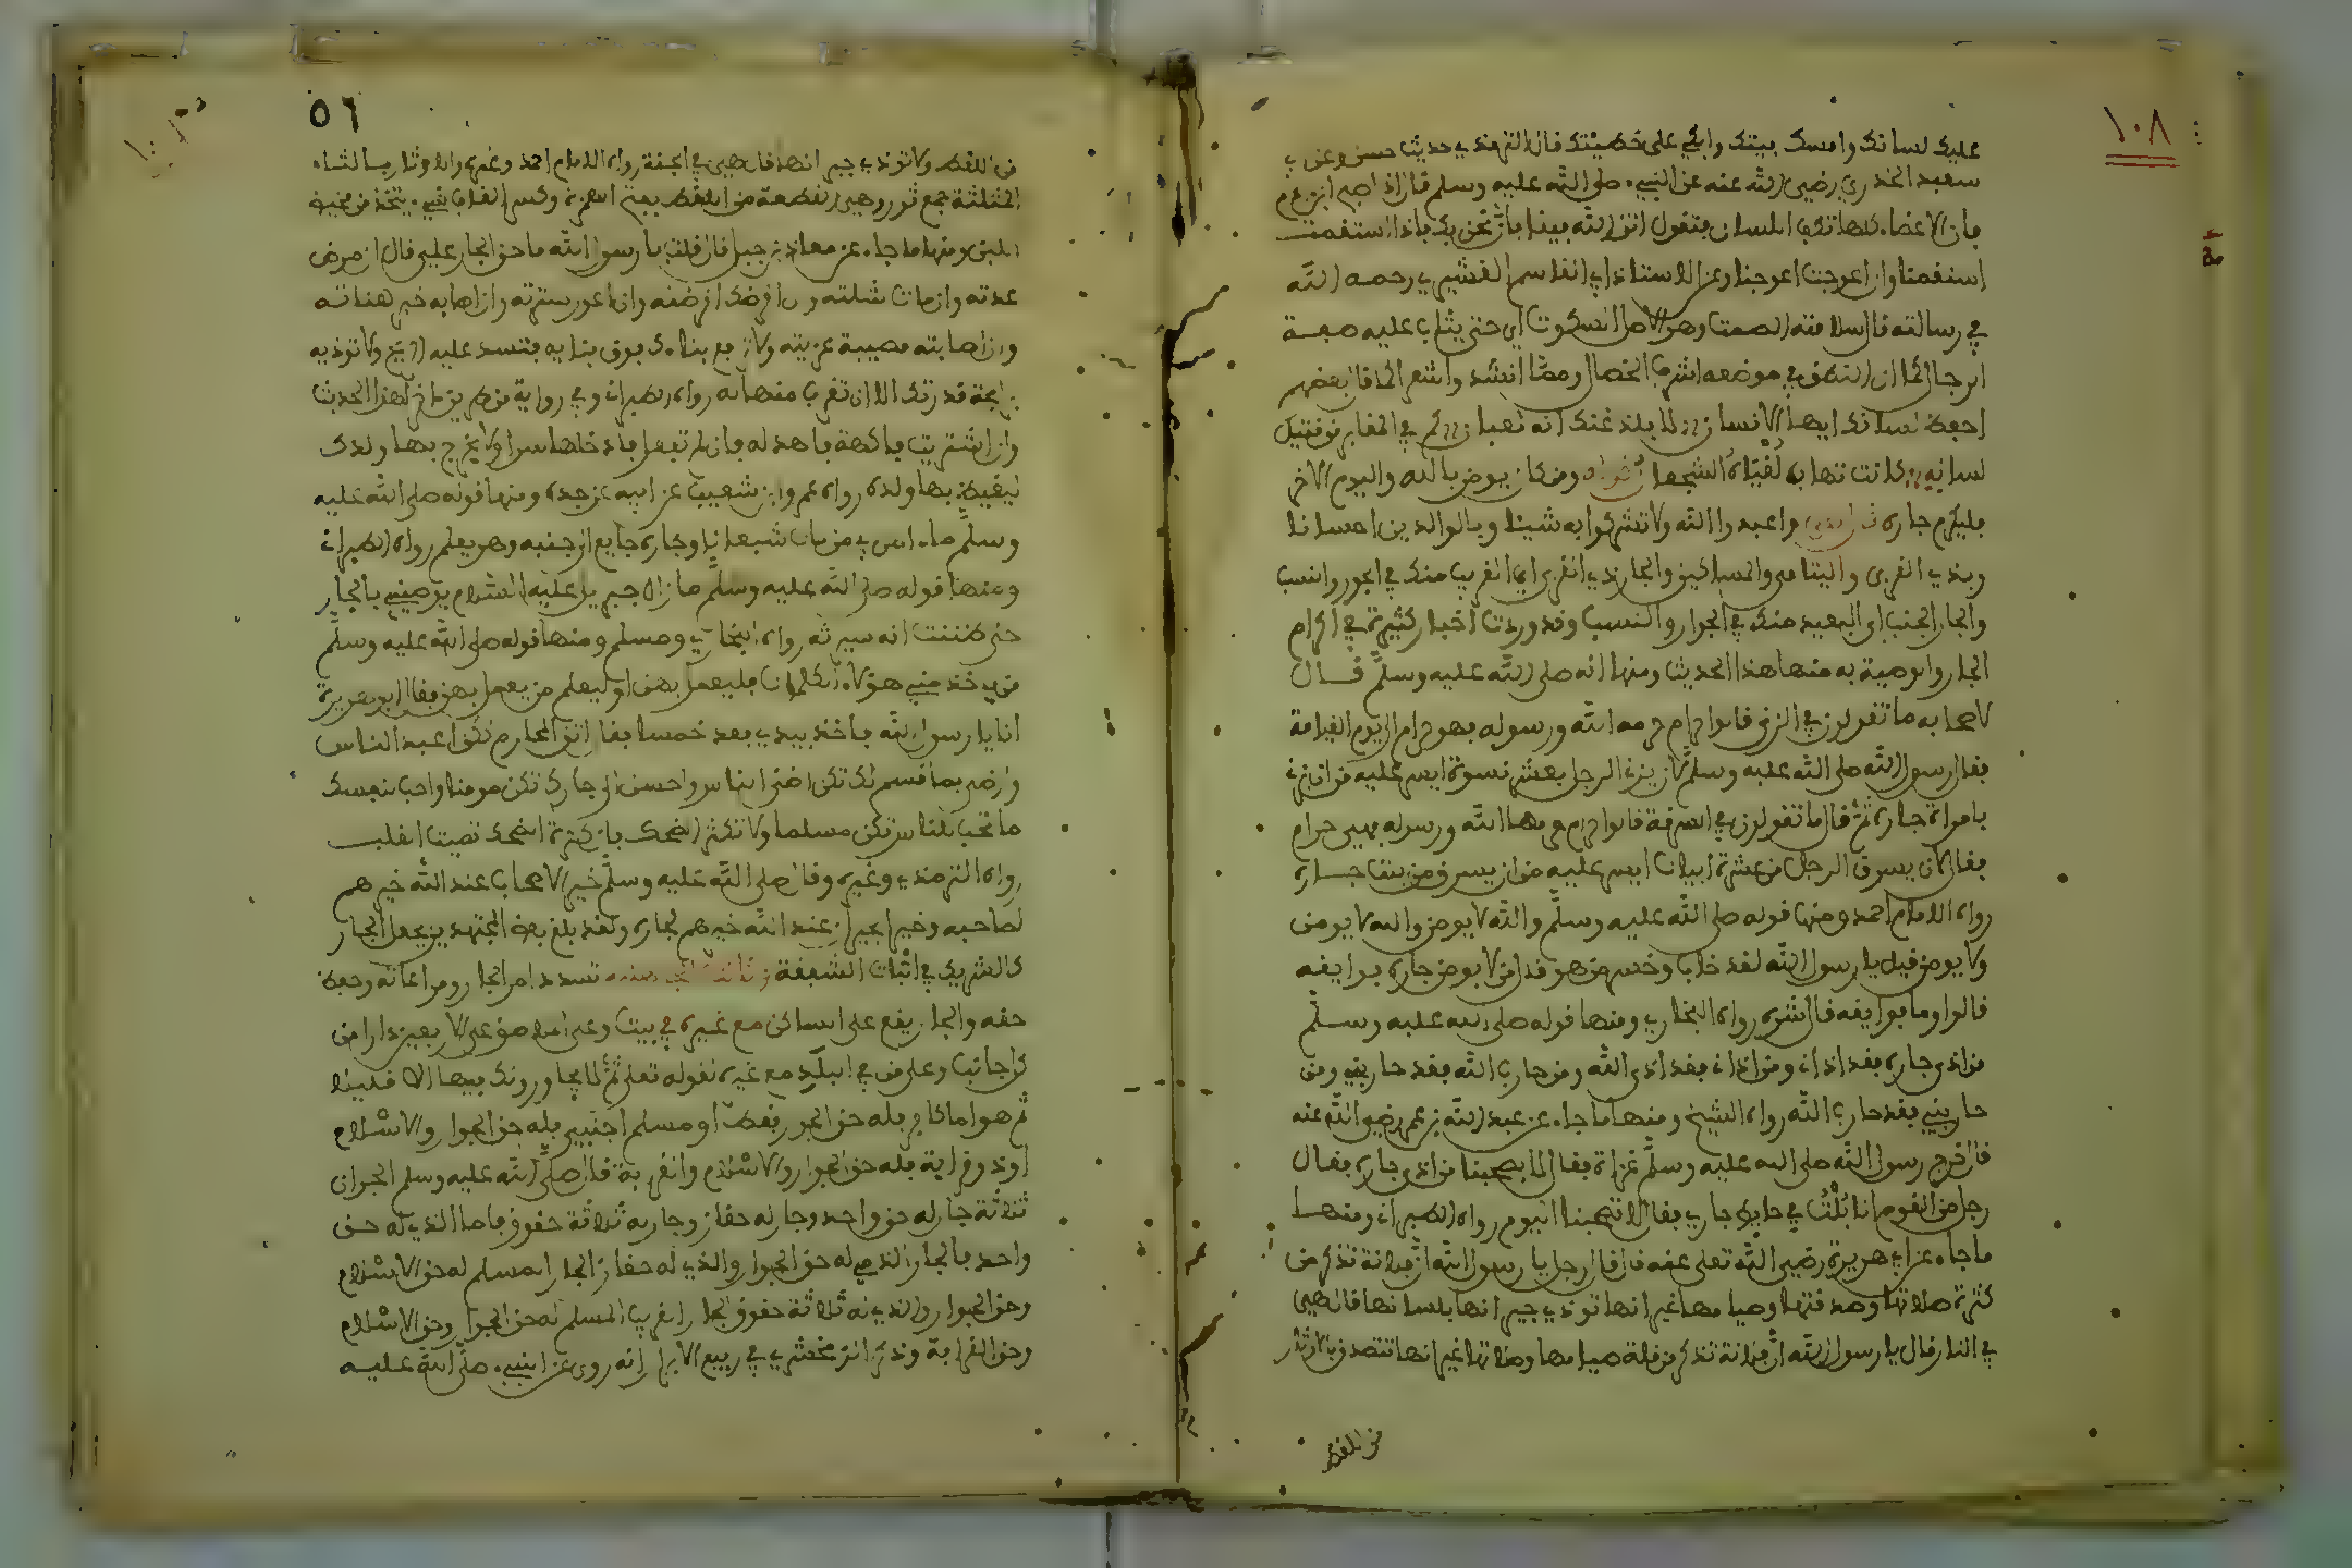 ١٠٨
عليك لسانك وامسك بيتك وابكي على خطيئتك قال الترمذي حديث حسن وعن أبي
سعيد الخدري رضي الله عنه عن النبي صلى الله عليه وسلم قال اذا اصبح ابن ءادم
فان الاعضاء كلها تكفر اللسان فتقول اتق الله فينا فانما نحن بك فاذا استقمت
استقمنا وان اعوججت اعوججنا وعن الاستاذ ابي القاسم القشيري رحمه الله
في رسالته قال السلامة الصمت وهو الاصل السكوت اي حتى يثاب عليه صفة
الرجال كما ان النطق في موضعه اشرف الخصال ومما انشد واشعر الحافا بعضهم
احفظ لسانك ايها الانسان لا يلدغنك انه ثعبان كم في المقابر من قتيل
لسانه كانت تهاب لقاءه الشجعان ومن كان يومن بالله واليوم الاخر
فليكرم جاره واعبدوا الله ولا تشركوا به شيئا وبالوالدين احسانا
وبذي القربى واليتامى والمساكين والجار ذي القربى اي القريب منك في الجوار والنسب
والجار الجنب اي البعيد منك في الجوار والنسب وقد وردت اخبار كثيرة في اكرام
الجار والوصية به منها هذا الحديث ومنها انه صلى الله عليه وسلم قال
لاصحابه ما تقولون في الزنى قالوا حرام حرمه الله ورسوله فهو حرام الى يوم القيامة
فقال رسول الله صلى الله عليه وسلم لان يزني الرجل بعشر نسوة ايسر عليه من ان يزني
بامراة جاره ثم قال ما تقولون في السرقة قالوا حرام حرمها الله ورسوله فهي حرام
فقال لان يسرق الرجل من عشرة ابيات ايسر عليه من ان يسرق من بيت جاره
رواه الامام احمد ومنها قوله صلى الله عليه وسلم والله لا يومن والله لا يومن
ولا يومن قيل يا رسول الله لقد خاب وخسر من هو قال من لا يومن جاره بوايقه
قالوا وما بوايقه قال شره رواه البخاري ومنها قوله صلى الله عليه وسلم
من اذى جاره فقد اذاني ومن اذاني فقد اذى الله ومن حارب الله فقد حاربني ومن
حاربني فقد حارب الله رواه الشيخ ومنها ما جاء عن عبد الله بن عمر رضي الله عنه
قال خرج رسول الله صلى الله عليه وسلم غزاة فقال لا يصحبنا من اذى جاره فقال
رجل من القوم انا بلت في حايط جاري فقال لا تصحبنا اليوم رواه الطبراني ومنها
ما جاء عن ابي هريرة رضي الله تعلى عنه قال قال رجل يا رسول الله ان فلانة تذكر من
كثرة صلاتها وصدقتها وصيامها غير انها توذي جيرانها بلسانها قال هي
في النار قال يا رسول الله ان فلانة تذكر من قلة صيامها وصلاتها غير انها تتصدق بالاثوار
من الاقط
٥٦
من الاقط ولا توذي جيرانها قال هي في الجنة رواه الامام احمد وغيره والاثوار بالثاء
المثلثة جمع ثور وهي القطعة من الاقط بفتح الهمزة وكسر القاف شيء يتخذ من مخيض
اللبن ومنها ما جاء عن معاذ بن جبل قال قلت يا رسول الله ما حق الجار علي قال ان مرض
عدته وان مات شيعته وان اقرضك اقرضته وان اعور سترته وان اصابه خير هناته
وان اصابته مصيبة عزيته ولا ترفع بناءك فوق بنايه فتسد عليه الريح ولا توذيه
برايحة قدرك الا ان تغرف منها له رواه الطبراني وفي رواية من طريق اخر لهذا الحديث
وان اشتريت فاكهة فاهد له فان لم تفعل فادخلها سرا ولا يخرج بها ولدك
ليغيظ بها ولده رواه عمرو ابن شعيب عن ابيه عن جده ومنها قوله صلى الله عليه
وسلم ما ءامن بي من بات شبعانا وجاره جايع الى جنبه وهو يعلم رواه الطبراني
ومنها قوله صلى الله عليه وسلم ما زال جبريل عليه السلام يوصيني بالجار
حتى ظننت انه سيورثه رواه البخاري ومسلم ومنها قوله صلى الله عليه وسلم
من ياخذ مني هؤلاء الكلمات فليعمل بهن او ليعلم من يعمل بهن فقال ابو هريرة
انا يا رسول الله فاخذ بيدي فعد خمسا فقال اتق المحارم تكن اعبد الناس
وارض بما قسم لك تكن اغنى الناس واحسن الى جارك تكن مومنا واحب لنفسك
ما تحب للناس تكن مسلما ولا تكثر الضحك فان كثرة الضحك تميت القلب
رواه الترمذي وغيره وقال صلى الله عليه وسلم خير الاصحاب عند الله خيرهم
لصاحبه وخير الجيران عند الله خيرهم لجاره ولقد بلغ بعض المجتهدين يجعل الجار
كالشريك في اثبات الشفعة تشدد امر الجار ومراعاته وحفظ
حقه والجار يقع على الساكن مع غيره في بيت وعلى الملاصق على الاربعين دارا من
كل جانب وعلى من في البلد مع غيره لقوله تعلى ثم لا يجاورونك فيها الا قليلا
ثم هو اما كافر فله حق الجوار فقط او مسلم اجنبي فله حق الجوار والاسلام
او ذو قرابة فله حق الجوار والاسلام والقرابة قال صلى الله عليه وسلم الجيران
ثلاثة جار له حق واحد وجار له حقان وجار له ثلاثة حقوق فاما الذي له حق
واحد فالجار الذمي له حق الجوار والذي له حقان الجار المسلم له حق الاسلام
وحق الجوار والذي له ثلاثة حقوق الجار القريب المسلم له حق الجوار وحق الاسلام
وحق القرابة وذكر الزمخشري في ربيع الابرار انه روى عن النبي صلى الله عليه